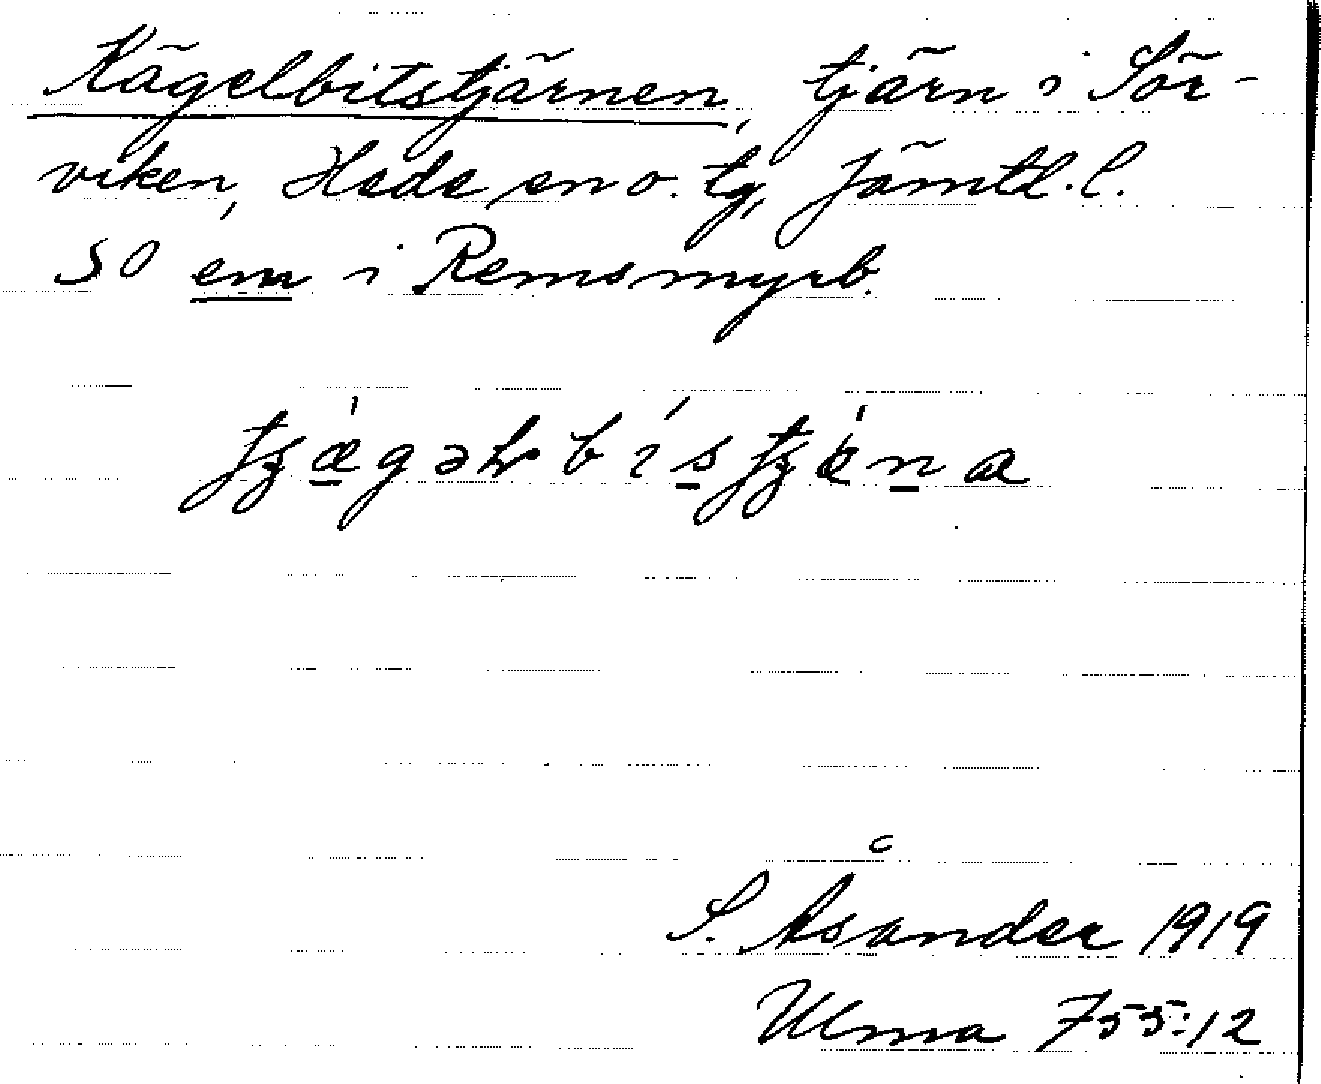 Kägelbitstjärnen, tjärn i Sör-
viken, Hede sn o. tg, Jämtl. l.
SO om i Remsmyrb.
S. Åsander 1919
Ulma 755:12